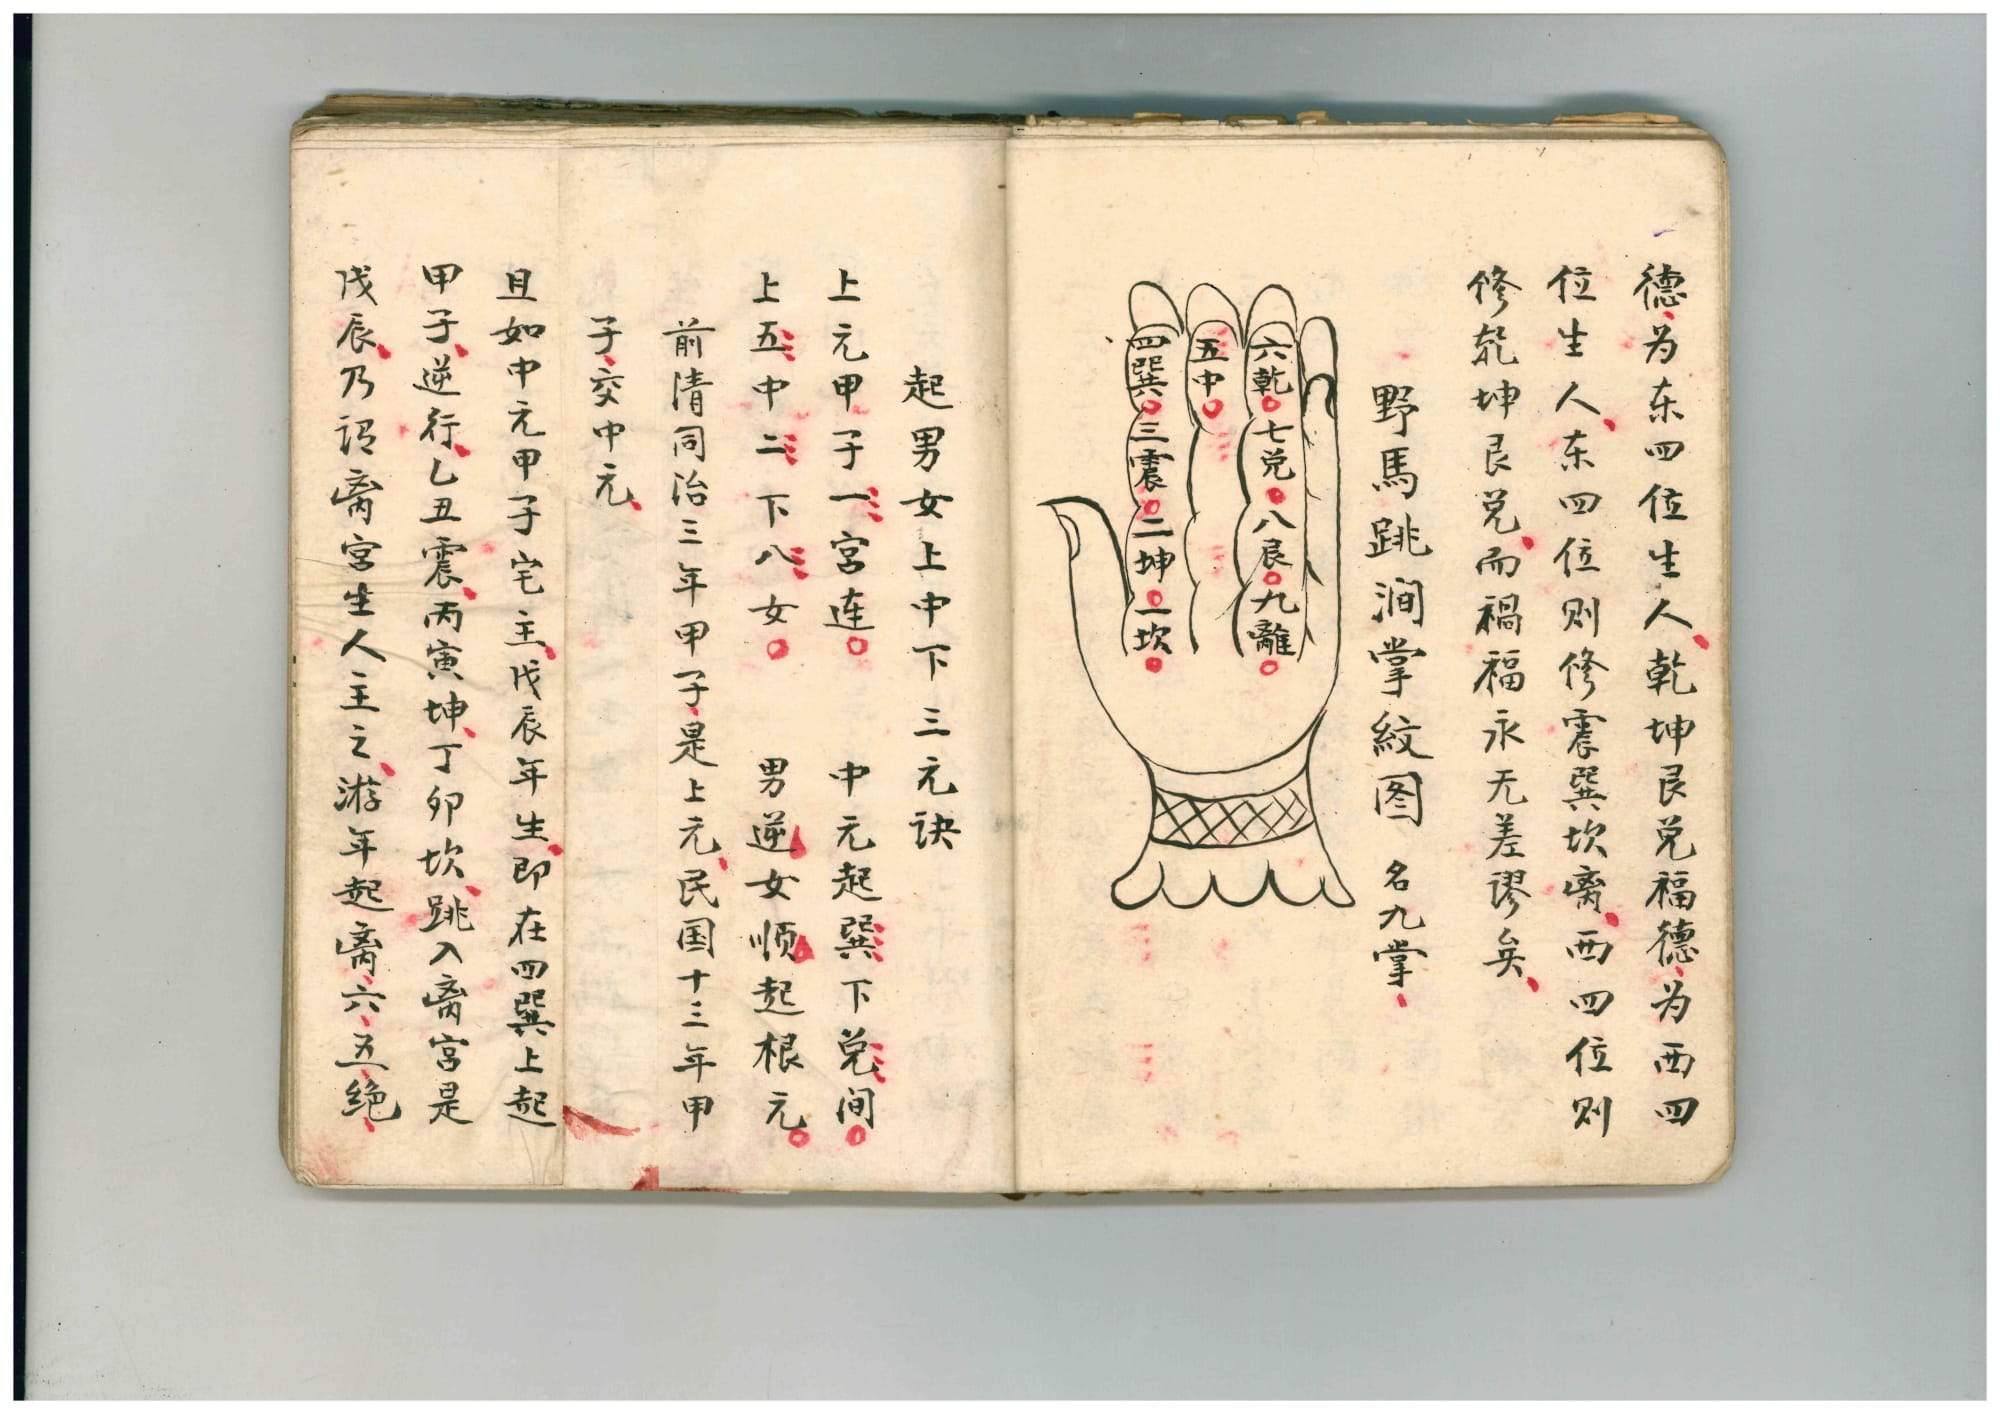 德为东四位生人乾坤艮兑福德为西四
位生人东四位则修震巽坎离西四位则
修乾坤艮兑而禍福永无差谬矣
野馬跳涧掌紋图 名九掌
六乾七兑八艮九離
五中
四巽三震二坤一坎
起男女上中下三元诀
上元甲子一宫连 中元起巽下兑间
上五中二下八女 男逆女顺起根元
前清同治三年甲子是上元民国十三年甲
子交中元
且如中元甲子宅主戊辰年生即在四巽上起
甲子逆行乙丑震丙寅坤丁卯坎跳入离宫是
戊辰乃谓离宫生人主之游年起离六五绝